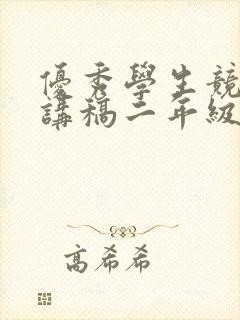 優秀學生競
講稿二年級
高希希